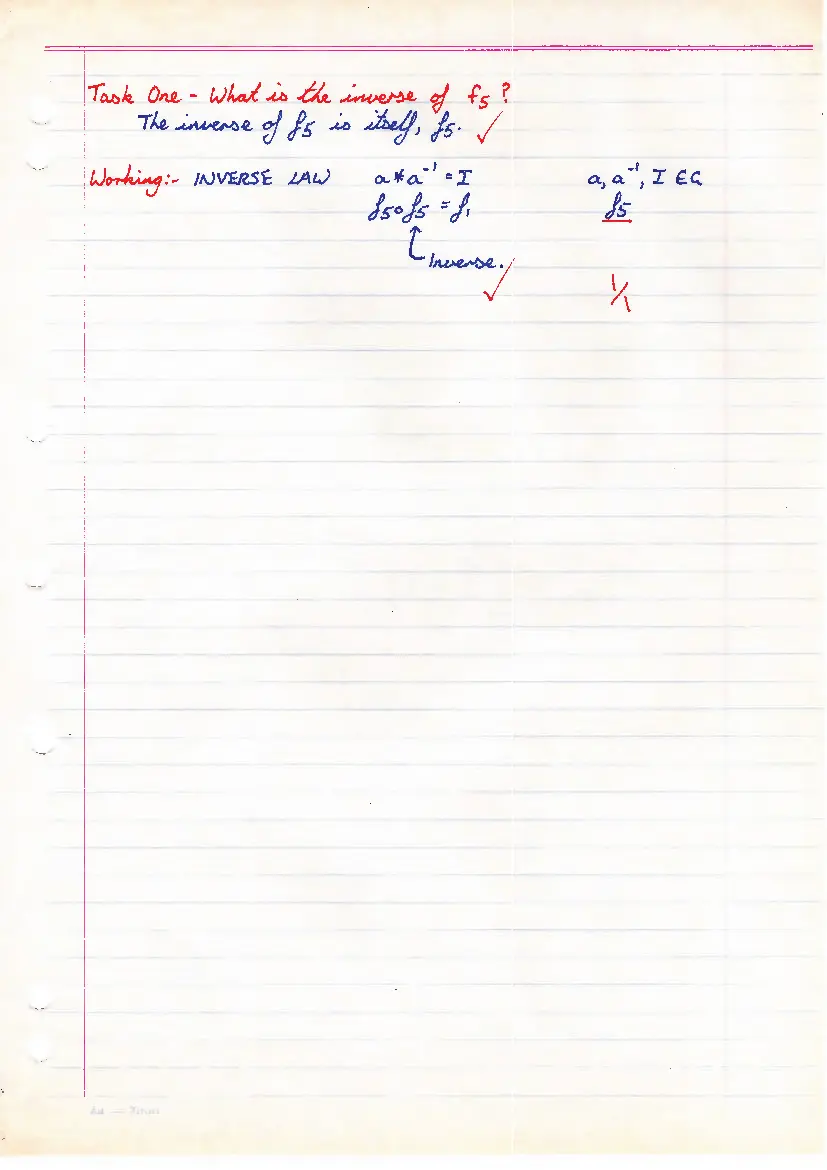 Task One - What is the inverse of f5?
The inverse of f5 is itself, f5. ✓
Working:- INVERSE LAW a * a⁻¹ = I a, a⁻¹, I ∈ G
f5 ∘ f5 = f1 f5
↑ Inverse. ✓
1/1